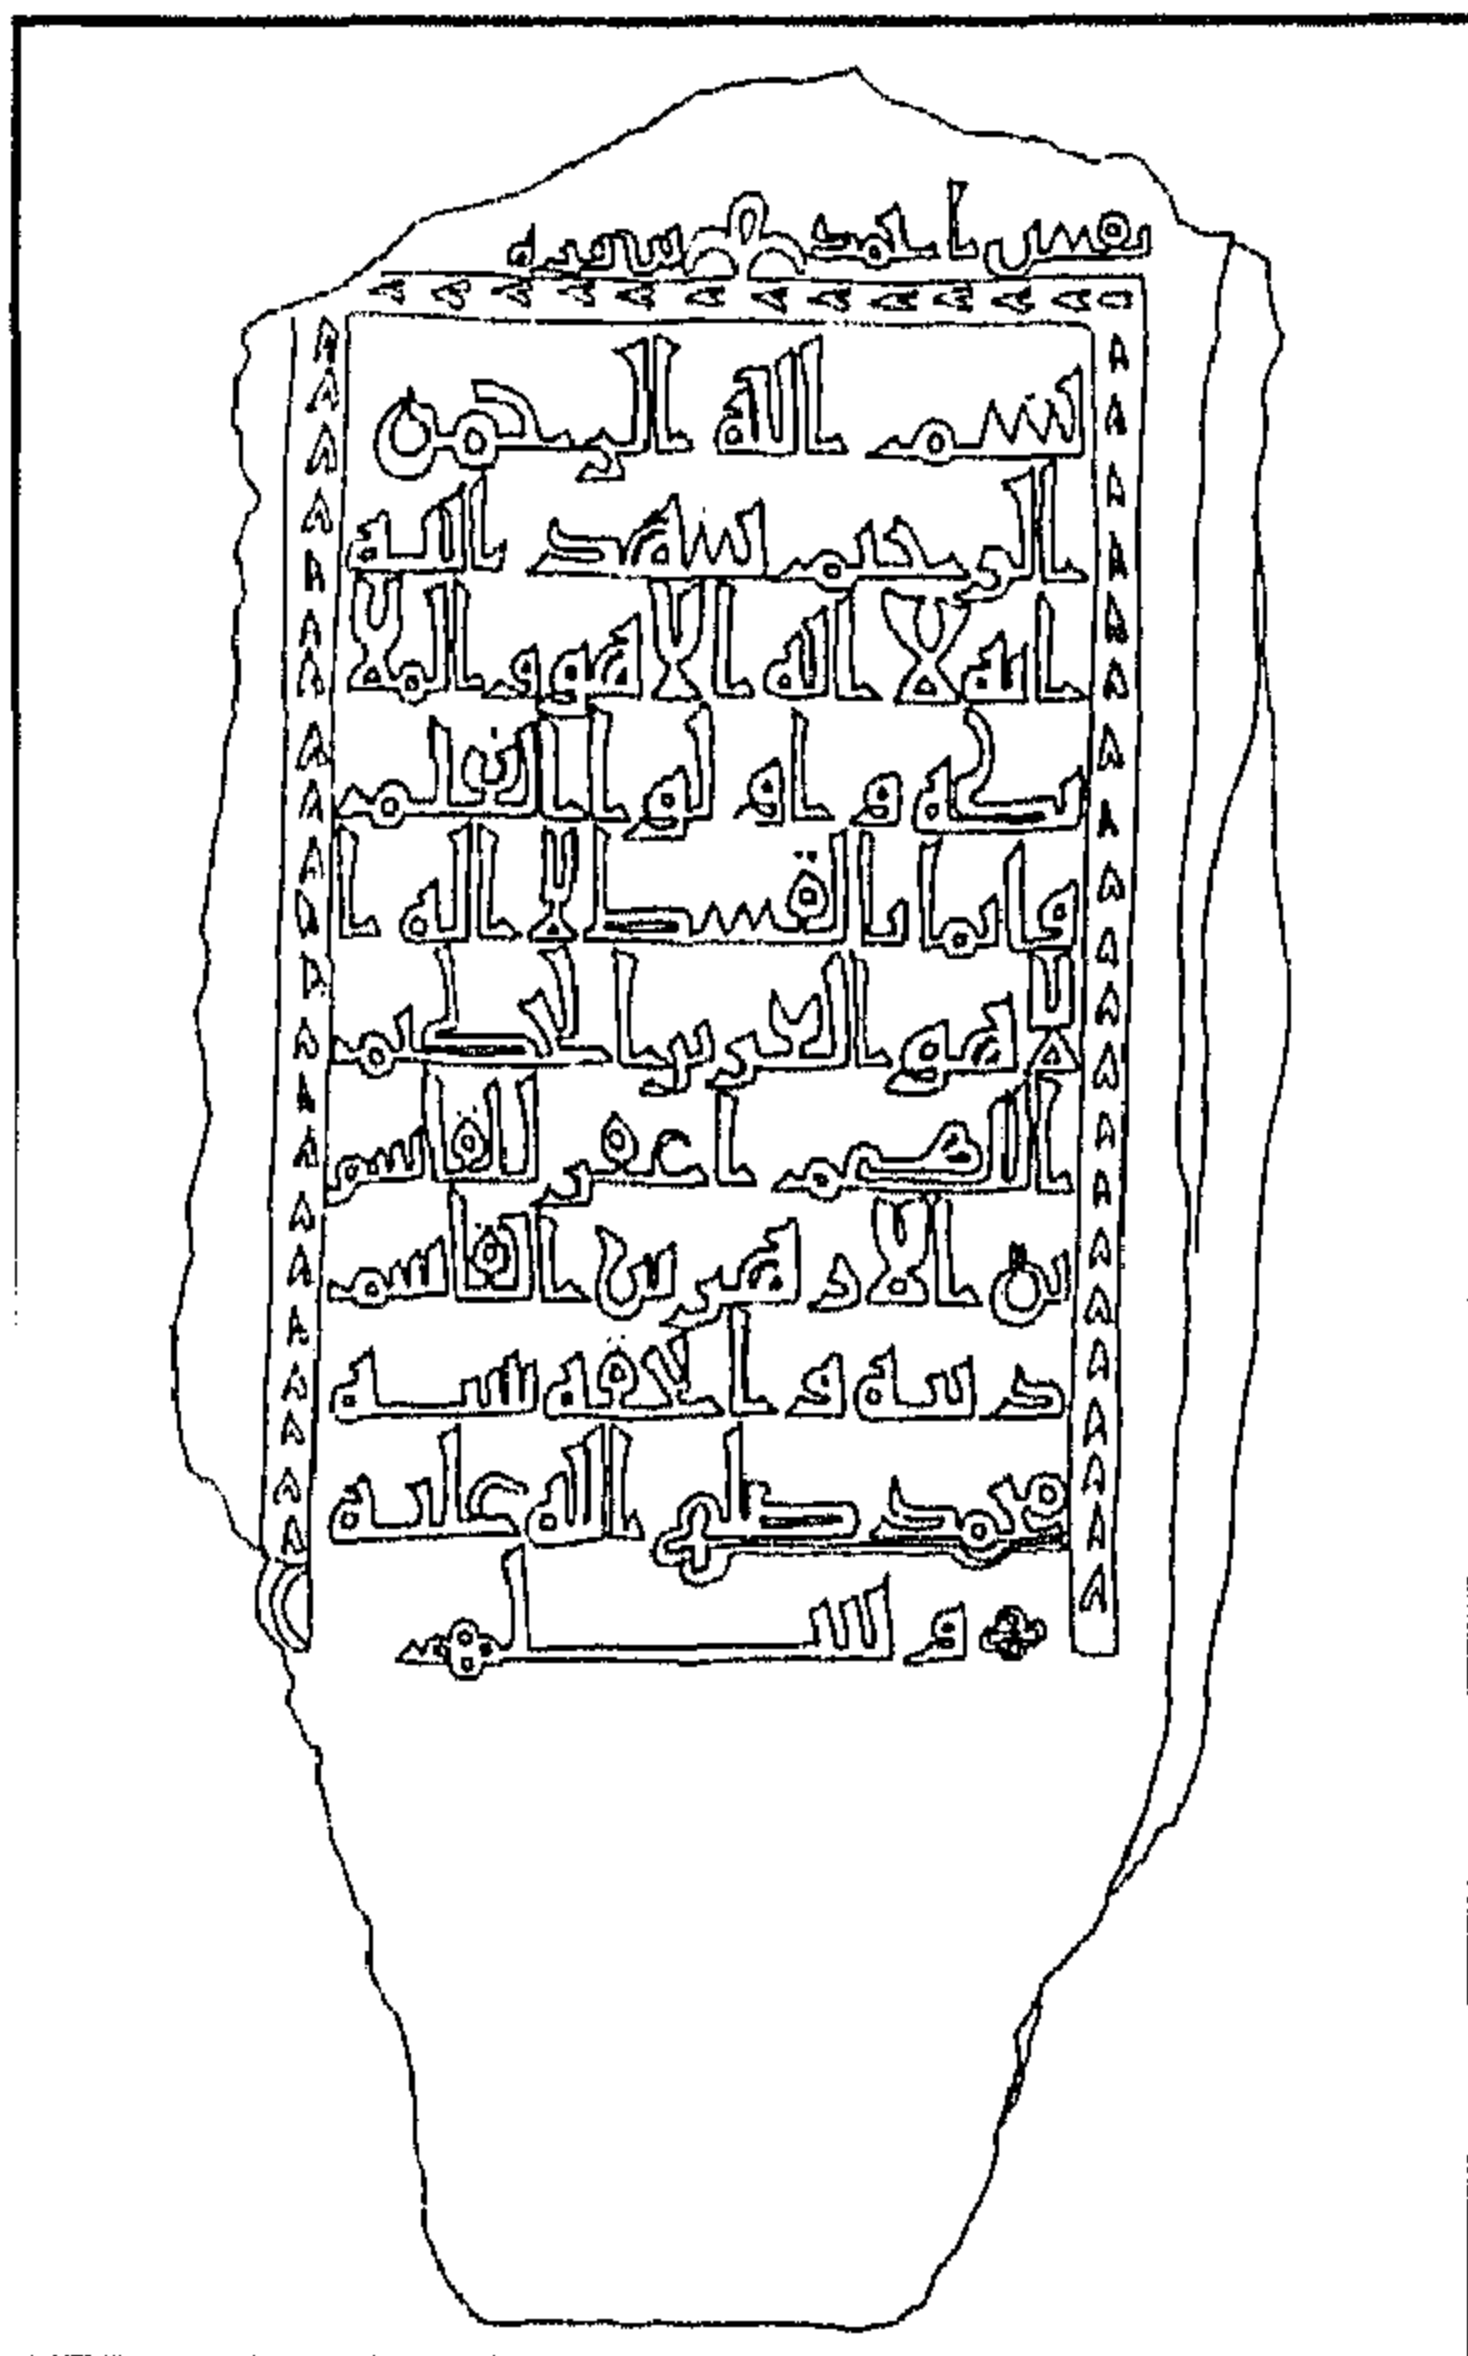 احمد
بسم الله الرحمن
الرحيم شهد الله
انه لا اله الا هو والملا
ئكة واولوا العلم
قائما بالقسط لا اله ا
لا هو العزيز الحكيم
اللهم اغفر القاسم
بن الازهر بن القاسم
والحقه بنبيه
محمد صلى الله عليه
وسلم